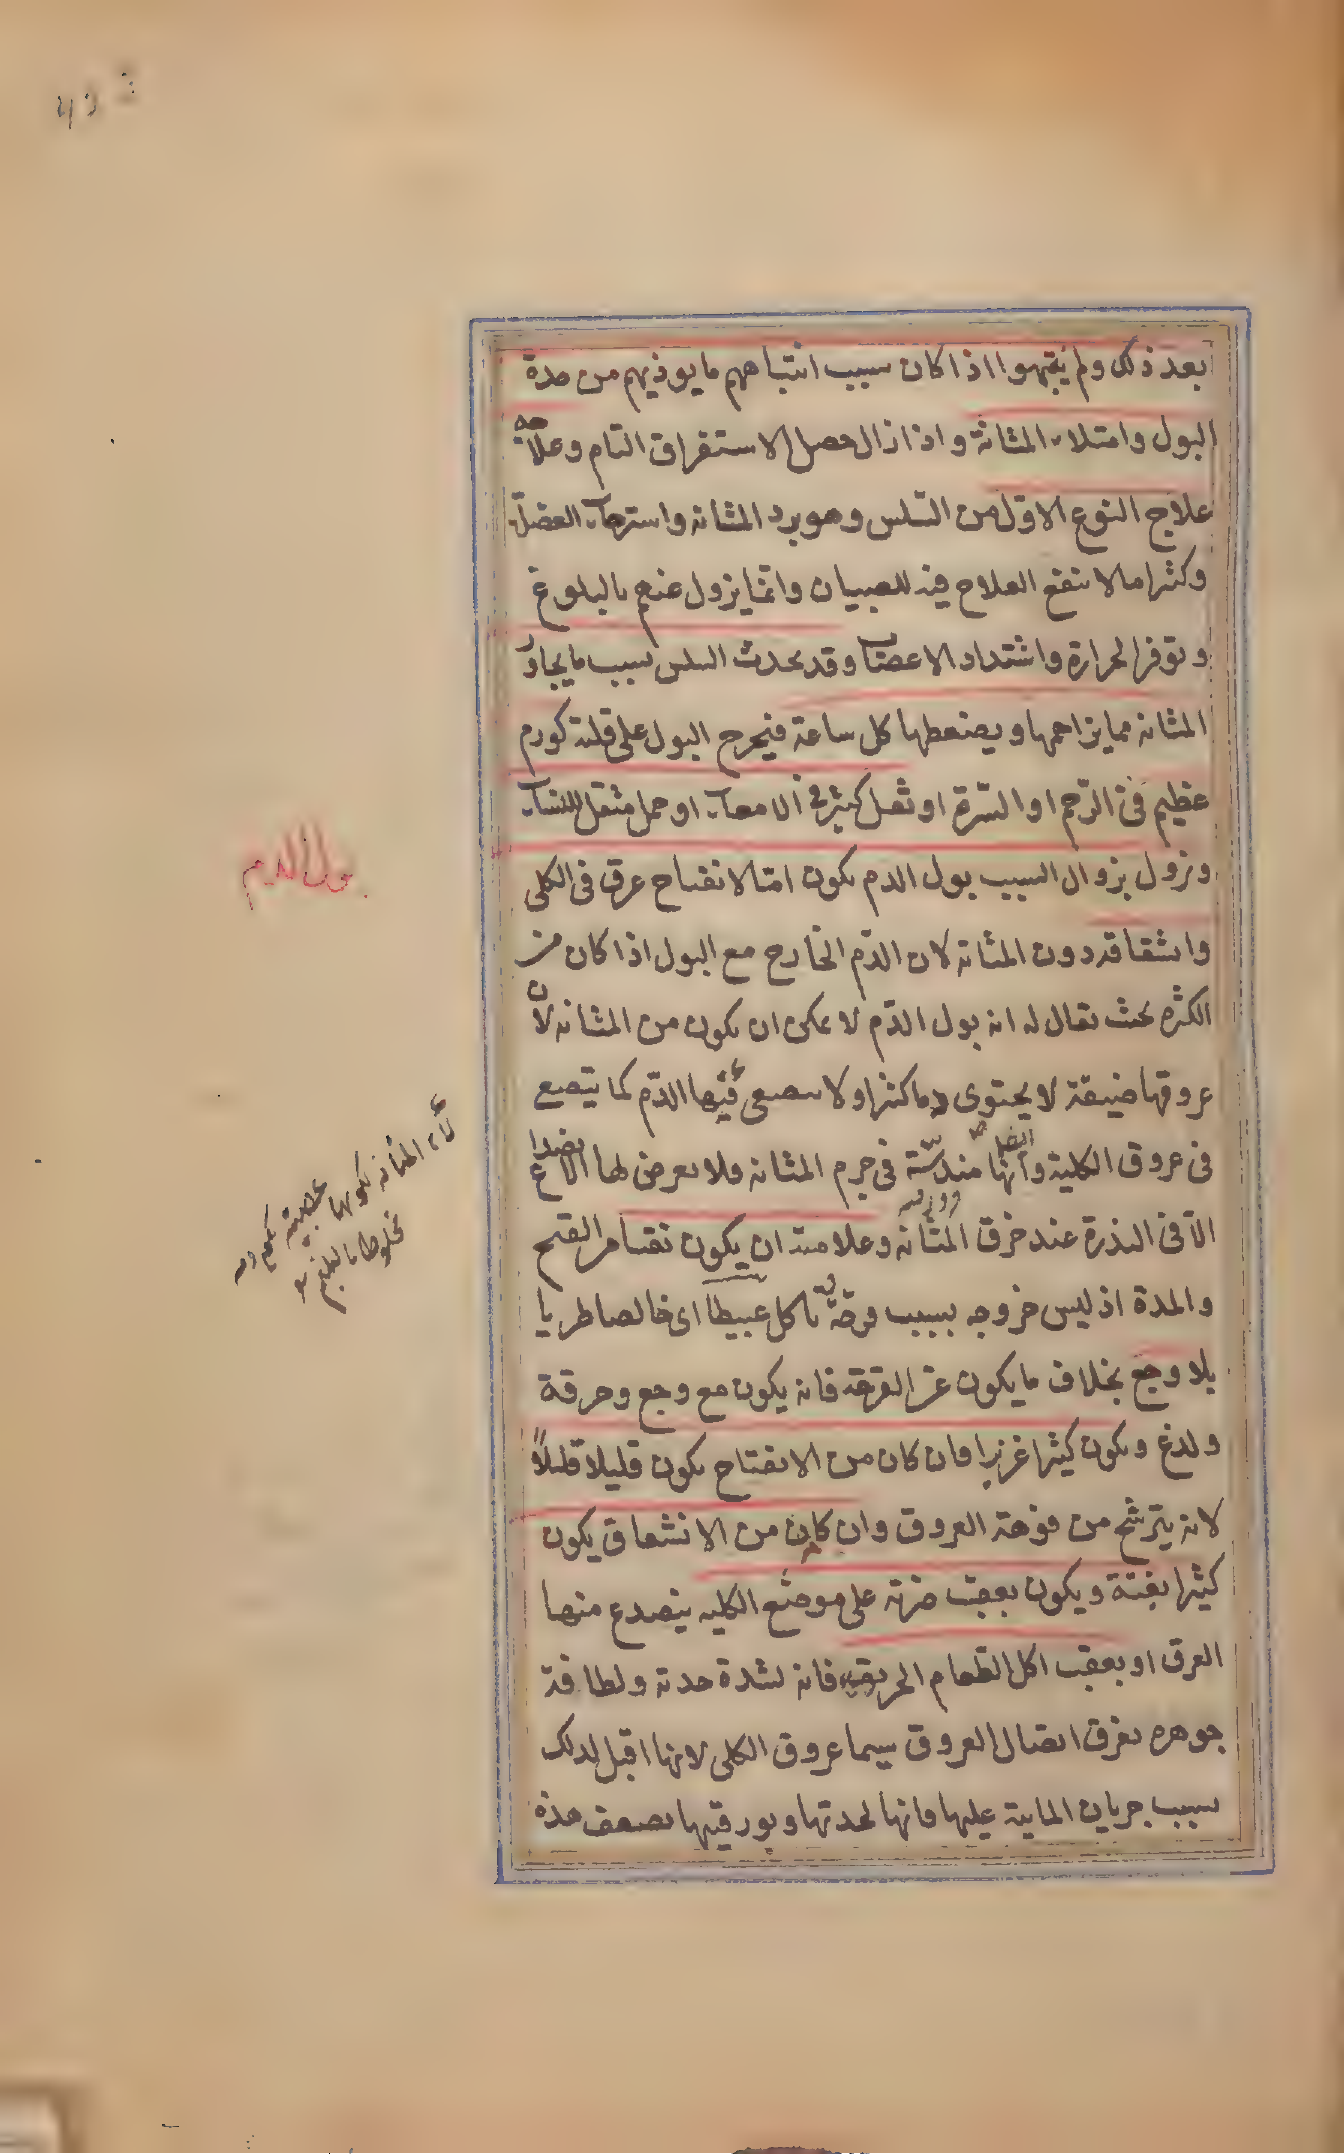 بعد ذلك ولم ينتبهوا اذا كان سبب انتباههم ما يوذيهم من حدة
البول وامتلاء المثانة واذا زال حصل الاستغراق التام وعلاجه
علاج النوع الاول من السلس وهو برد المثانه واسترخاء العضلة
وكثيرا ما لا ينفع العلاج فيه للصبيان وانما يزول عنهم بالبلوغ
وتوفر الحرارة واشتداد الاعصاب وقد يحدث السلس بسبب ما يجاور
المثانه مما يزاحمها ويضغطها كل ساعة فيخرج البول على قلته كورم
عظيم فى الرحم او السرة او ثفل كثير فى الامعاء او حمل مثقل للنساء
ويزول بزوال السبب بول الدم يكون اما لانفتاح عرق فى الكلى
وانشقاقه دون المثانه لان الدم الخارج مع البول اذا كان من
الكثرة بحيث يقال له انه بول الدم لا يمكن ان يكون من المثانه لان
عروقها ضيقة لا يحتوى دما كثيرا ولا يصفى فيها الدم كما يتصفى
فى عروق الكلية وايضا انها مندسة فى جرم المثانه ولا يعرض لها الانصداع
الا فى الندرة عند خرق المثانه وعلامته ان يكون نقيا من القيح
والمدة اذ ليس خروجه بسبب قرحة وتاكل عبيطا اى خالصا طريا
بلا وجع بخلاف ما يكون عن القرحة فانه يكون مع وجع وحرقة
ولدغ ويكون كثيرا غزيرا فان كان من الانفتاح يكون قليلا قليلا
لانه يترشح من فوهة العروق وان كان من الانشقاق يكون
كثيرا بغتة ويكون بعقب ضربة على موضع الكليه ينصدع منها
العرق او بعقب اكل الطعام الحريف فانه لشدة حدته ولطافة
جوهره يفرق اتصال العروق سيما عروق الكلى لانها اقبل لذلك
بسبب جريان المايية عليها فانها لحدتها وبورقيتها يضعف هذه
بول الدم
لان المثانه لكونها عصبية يكون دمه
مخلوطا بالبلغم